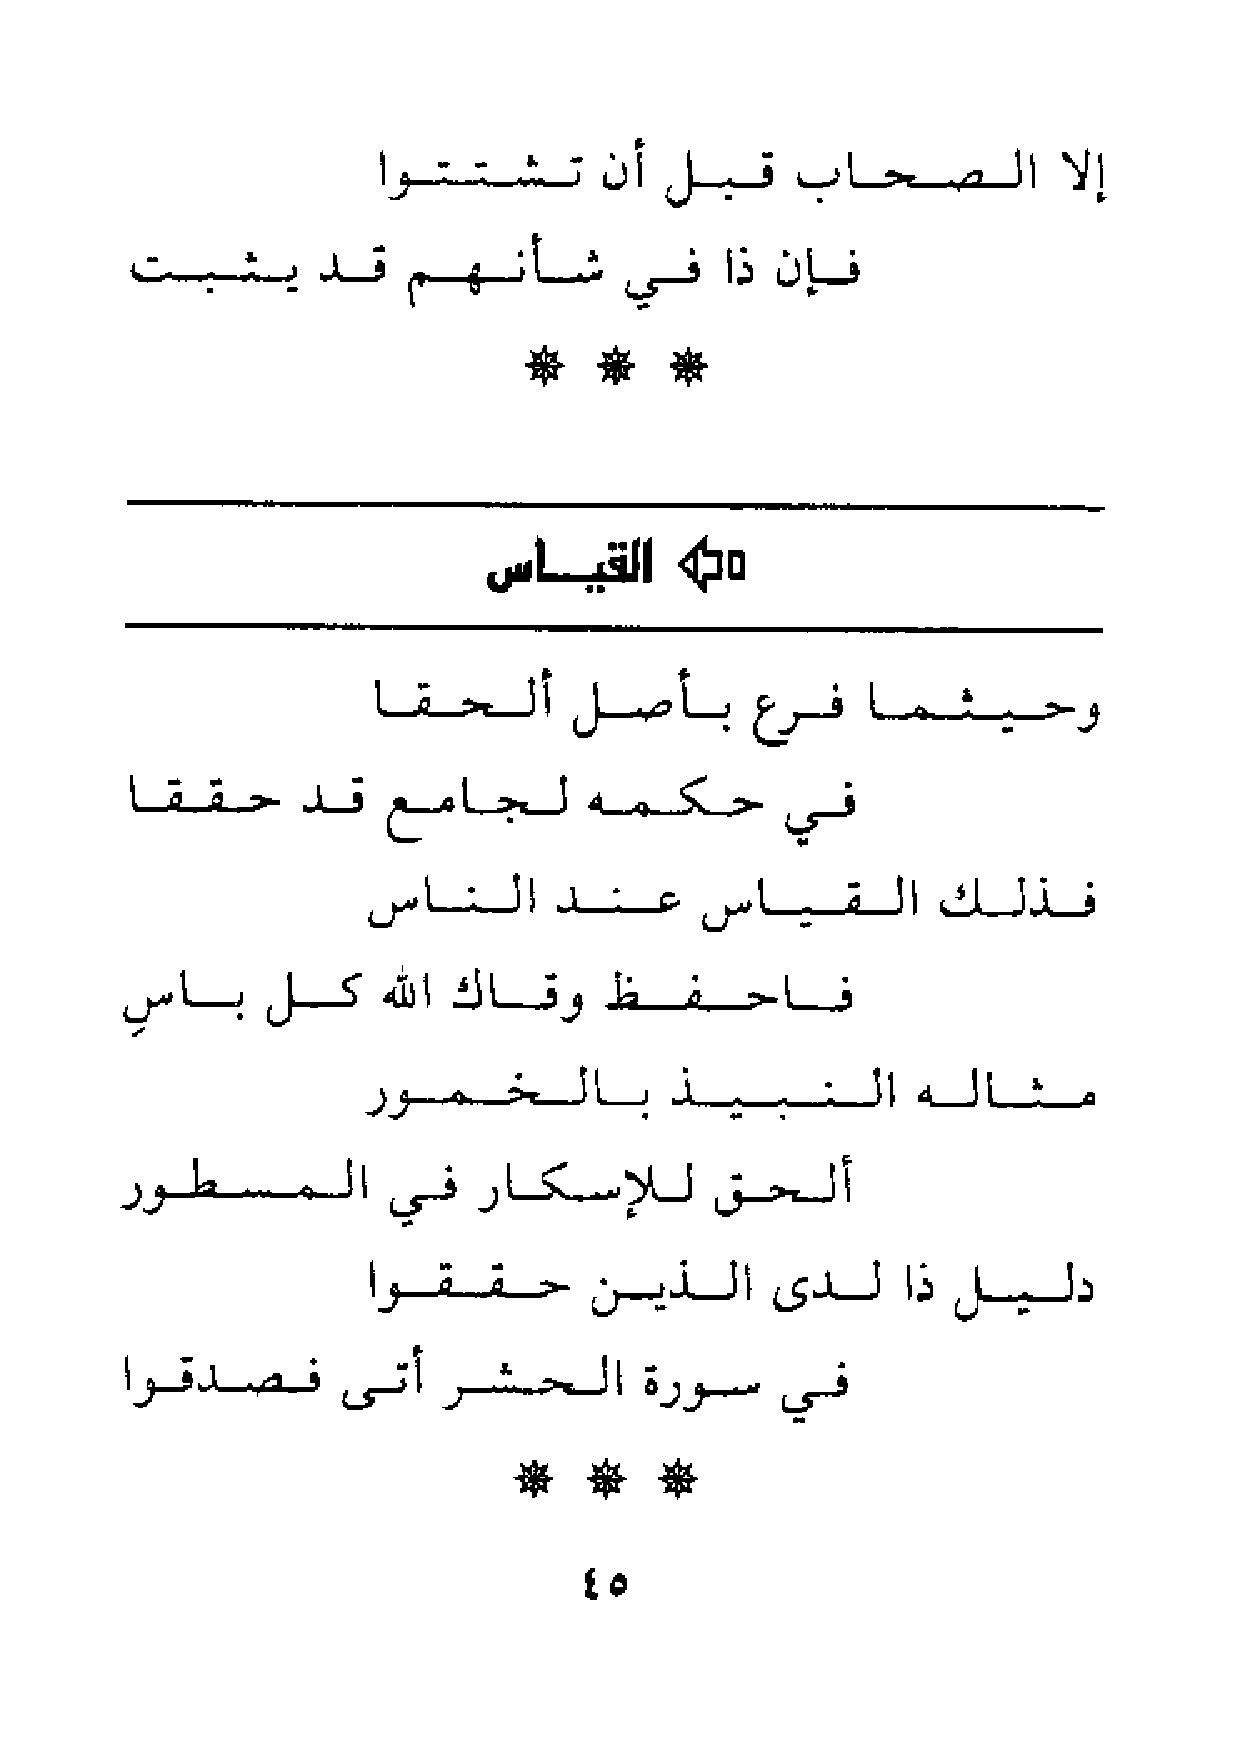 إلا الصحاب قبل أن تشتتوا
فإن ذا في شأنهم قد يثبت
القياس
وحيثما فرع بأصل ألحقا
في حكمه لجامع قد حققا
فذلك القياس عند الناس
فاحفظ وقاك الله كل باسِ
مثاله النبيذ بالخمور
ألحق للإسكار في المسطور
دليل ذا لدى الذين حققوا
في سورة الحشر أتى فصدقوا
٤٥